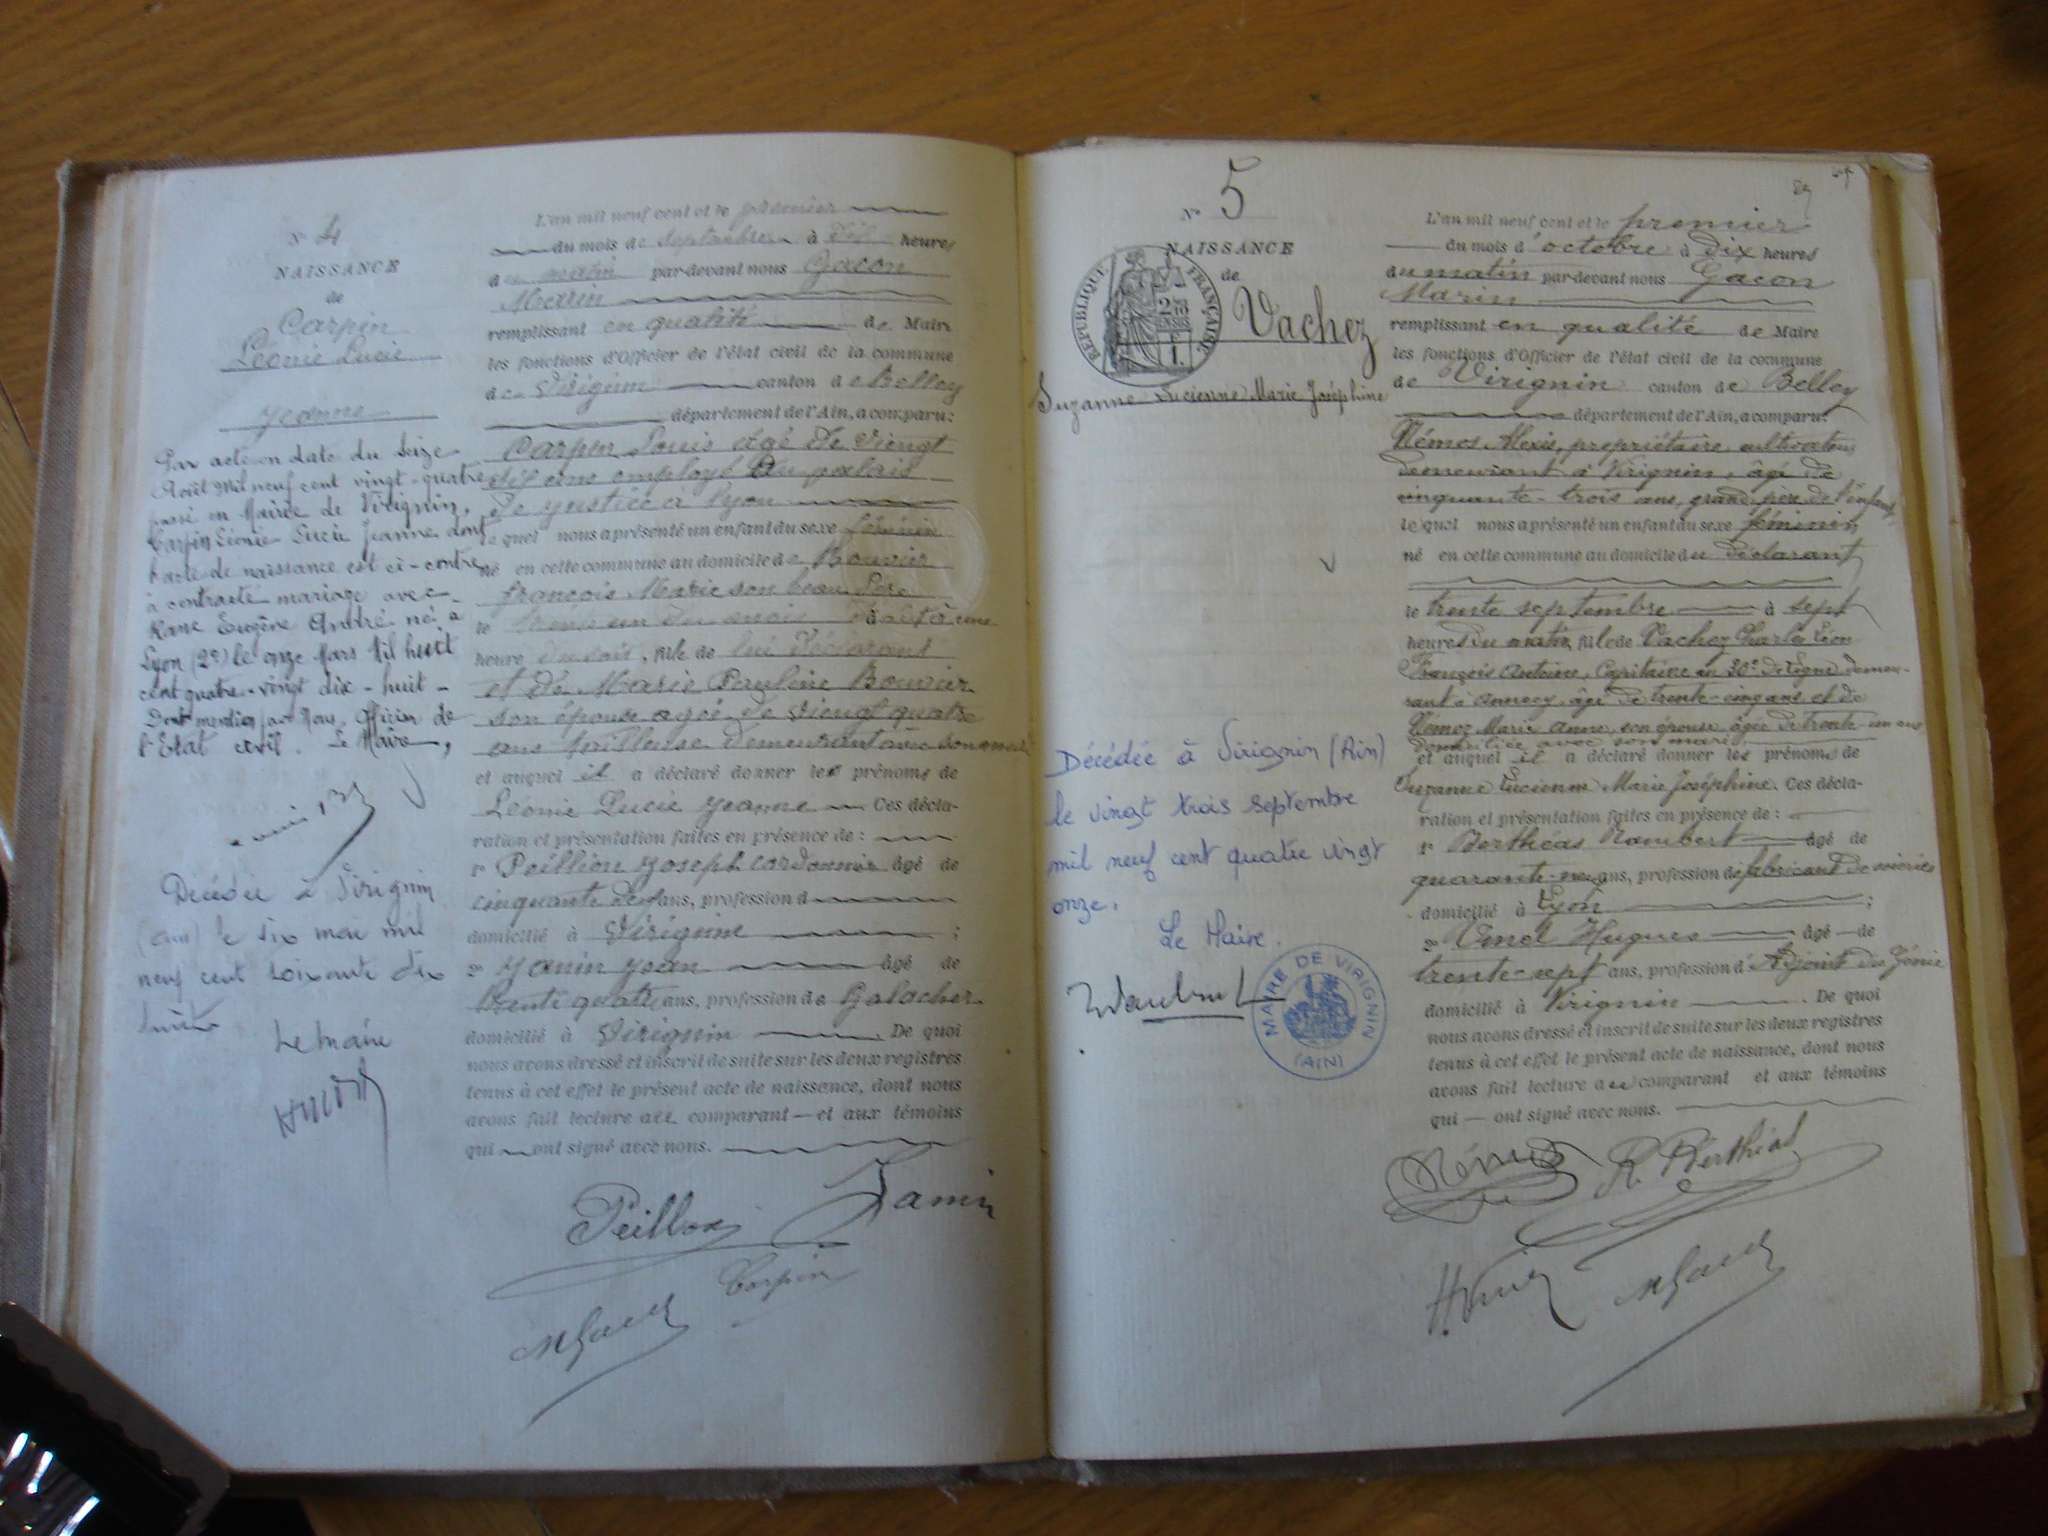 N° 4
NAISSANCE
de
Carpin
Léonie Lucie
Jeanne
Par acte en date du seize
Août Mil neuf cent vingt-quatre
passé en Mairie de Virignin,
Carpin Léonie Lucie Jeanne dont
l'acte de naissance est ci-contre
à contracté mariage avec
Eugène André né à
Lyon (2e) le onze Mars Mil huit
cent quatre-vingt dix-huit-
Dont mention par Nous, Officier de
l'Etat civil. Le Maire,
Décédée à Virignin
(Ain) le six mai mil
neuf cent soixante dix
huit
Le maire
L'an mil neuf cent et le premier
du mois de septembre à dix heures
du matin par-devant nous Gacon
Marin
remplissant en qualité de Maire
les fonctions d'Officier de l'état civil de la commune
de Virignin canton de Belley
département de l'Ain, a comparu:
Carpin Louis âgé de vingt
dix ans employé au palais
de justice a Lyon
lequel nous a présenté un enfant du sexe féminin
né en cette commune au domicile de Bouvier
françois Marie son beau Père
le trente un du mois d'août à une
heure du soir, fille de lui déclarant
et de Marie Pauline Bouvier
son épouse agée de vingt quatre
ans tailleuse demeurant avec son mari
et auquel il a déclaré donner les prénoms de
Léonie Lucie Jeanne Ces décla-
ration et présentation faites en présence de:
1° Peillion Joseph cordonnier âgé de
cinquante dex ans, profession d
domicilié à Virignin ;
2° Janin Jean âgé de
trente quatre ans, profession de Galocher
domicilié à Virignin. De quoi
nous avons dressé et inscrit de suite sur les deux registres
tenus à cet effet le présent acte de naissance, dont nous
avons fait lecture au comparant — et aux témoins
qui ont signé avec nous.
Peillon Janin
Carpin
MGacon
N° 5
NAISSANCE
de
Vachez
Suzanne Lucienne Marie Joséphine
RÉPUBLIQUE FRANÇAISE
Décédée à Virignin (Ain)
le vingt trois septembre
mil neuf cent quatre vingt
onze.
Le Maire.
MAIRIE DE VIRIGNIN
(AIN)
L'an mil neuf cent et le premier
du mois d'octobre à Dix heures
du matin par-devant nous Gacon
Marin
remplissant en qualité de Maire
les fonctions d'Officier de l'état civil de la commune
de Virignin canton de Belley
département de l'Ain, a comparu:
Némoz Alexis, propriétaire cultivateur
demeurant à Virignin, âgé de
cinquante-trois ans, grand père de l'enfant,
lequel nous a présenté un enfant du sexe féminin
né en cette commune au domicile du déclarant
le trente septembre à sept
heures du matin, fille de Vachez Charles Léon
François Antoine, Capitaine au 30e de Ligne demeu-
rant à Annecy, âgé de trente-cinq ans et de
Némoz Marie Anne, son épouse âgée de trente-un ans
domiciliée avec son mari
et auquel il a déclaré donner les prénoms de
Suzanne Lucienne Marie Joséphine. Ces décla-
ration et présentation faites en présence de:
1° Berthéas Rambert âgé de
quarante-neuf ans, profession de fabricant de soieries
domicilié à Lyon ;
2° Hugues âgé de
trente-sept ans, profession d'Adjoint du Génie
domicilié à Virignin. De quoi
nous avons dressé et inscrit de suite sur les deux registres
tenus à cet effet le présent acte de naissance, dont nous
avons fait lecture au comparant et aux témoins
qui — ont signé avec nous.
Némoz R. Berthéas
MGacon